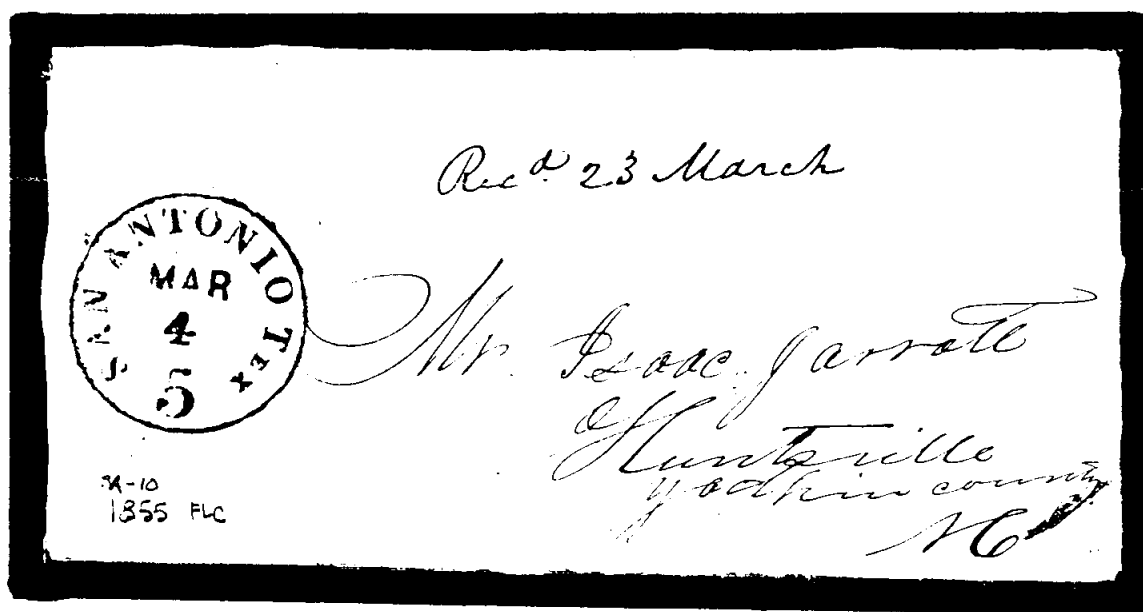 Recd 23 March
SAN ANTONIO TEX
MAR
4
5
Mr. Isaac Jarratt
Huntsville
Yadkin county
NC
1855 FLC